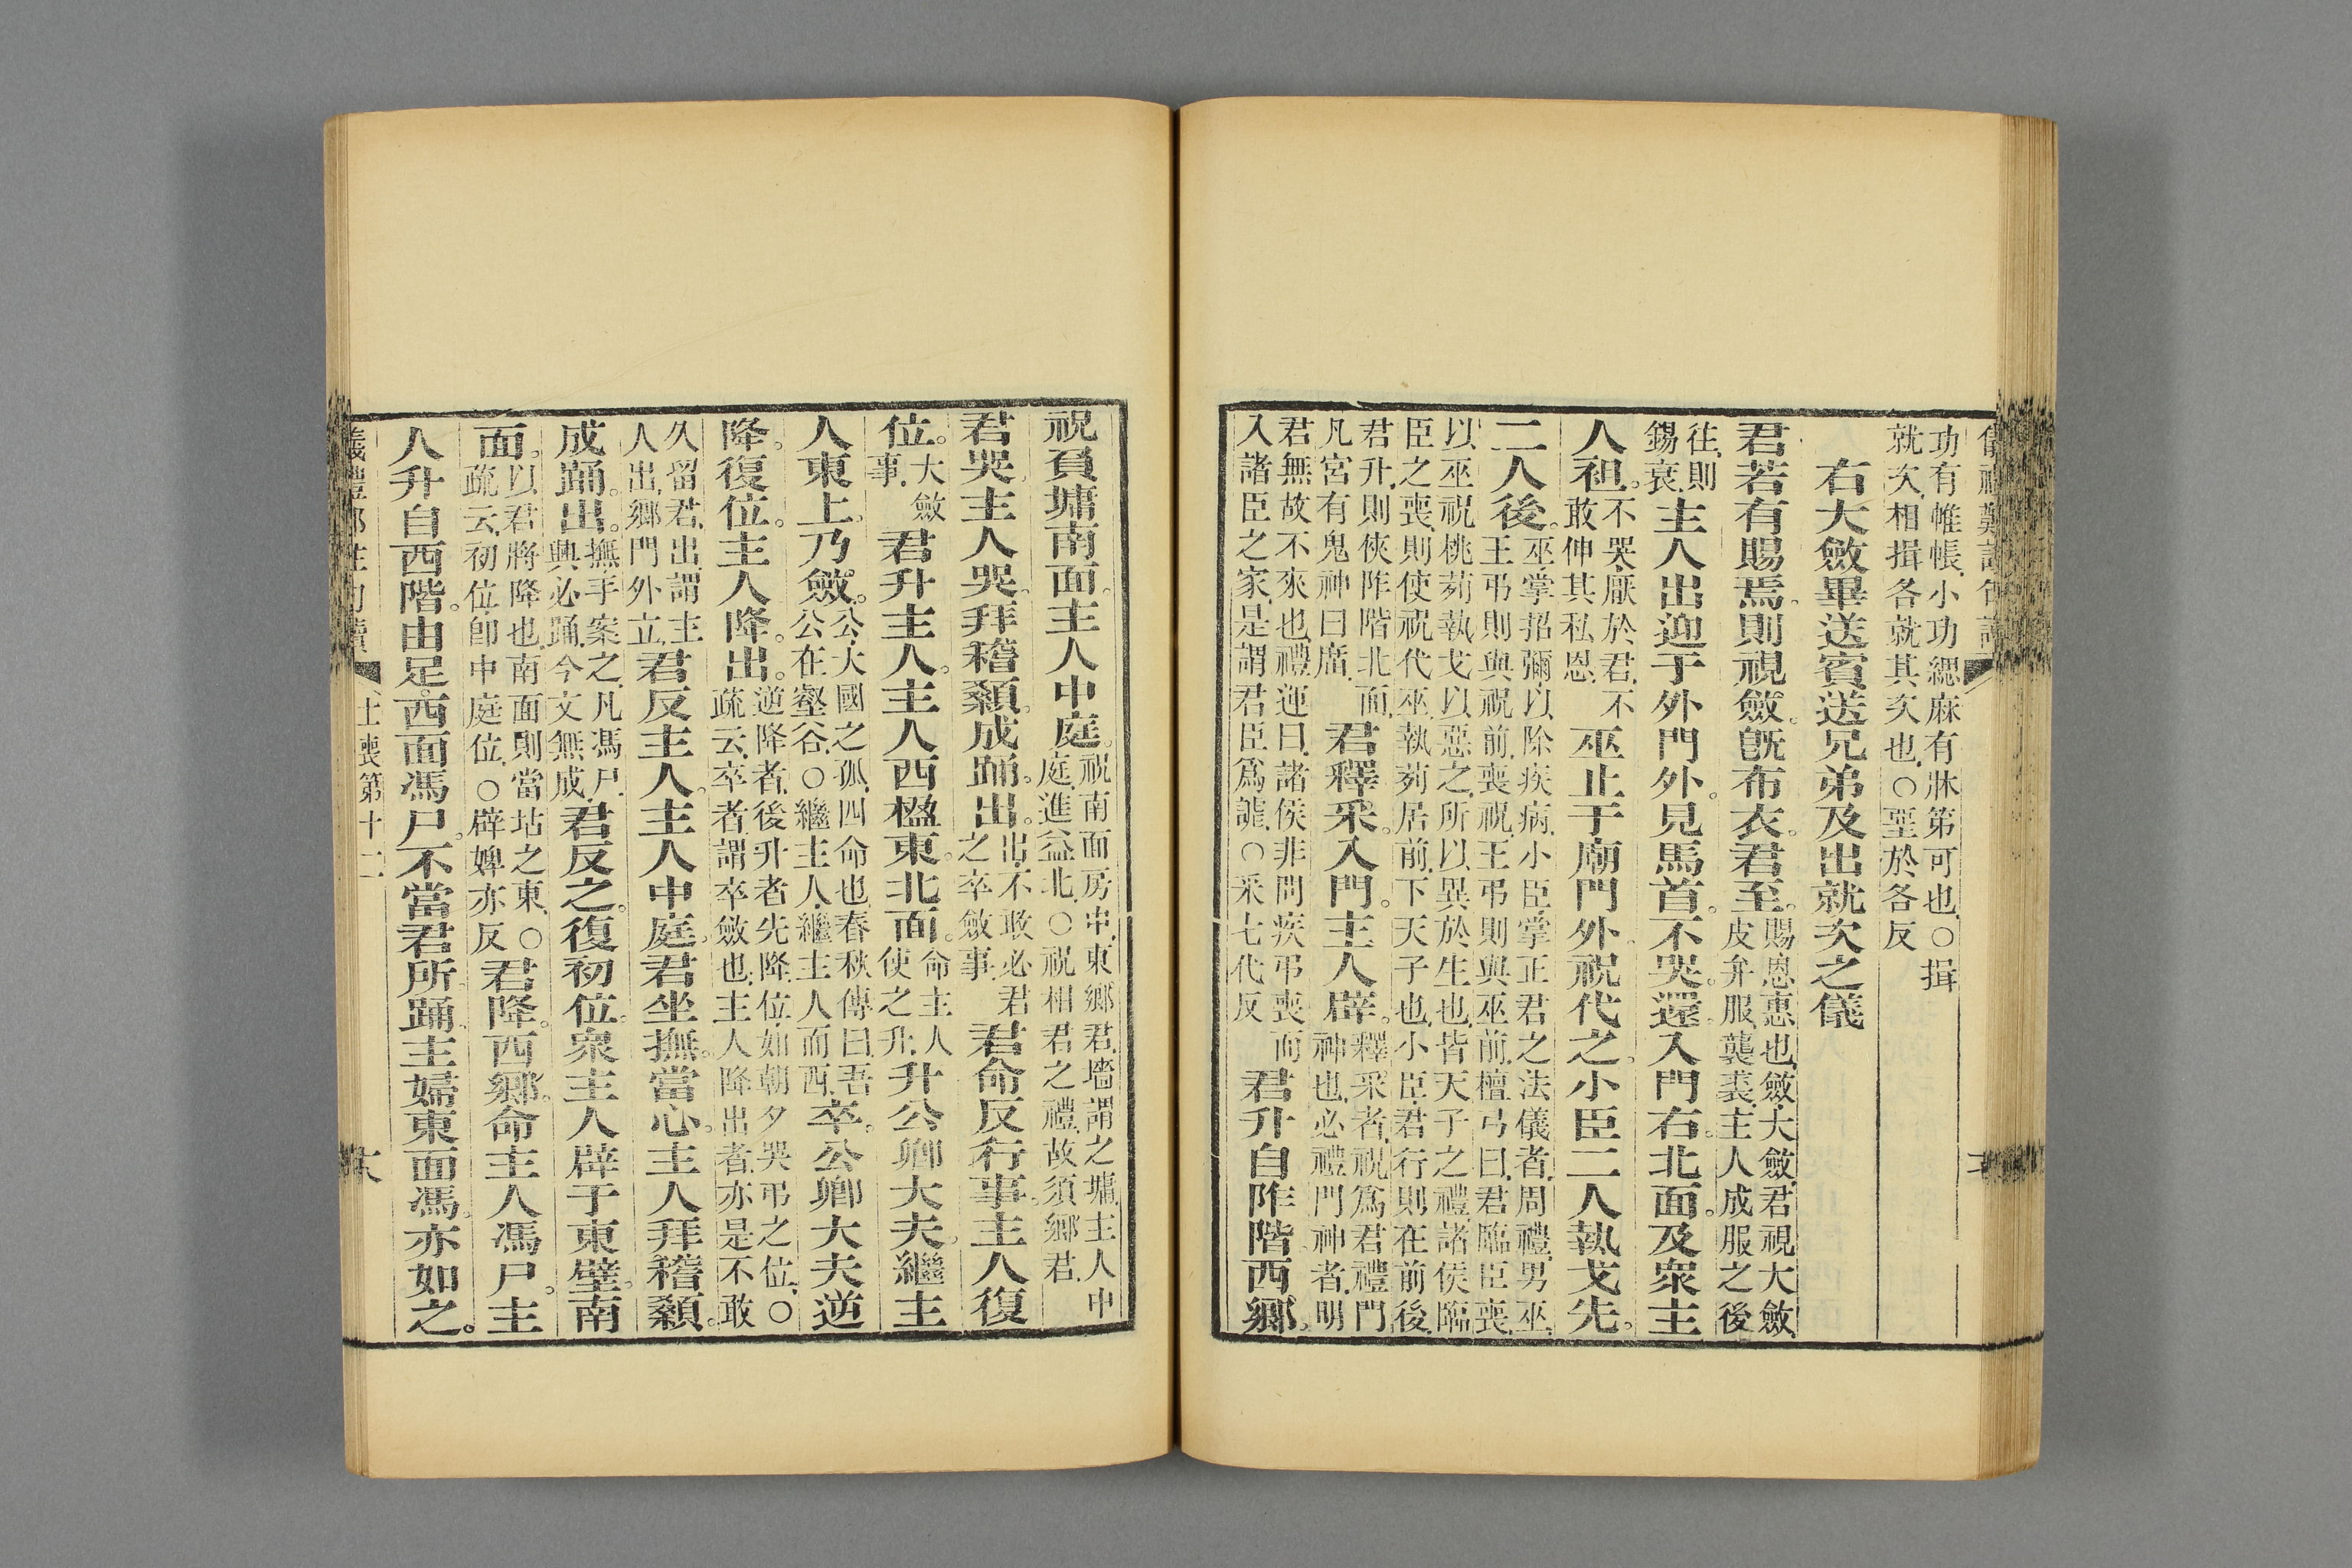 功有帷帳。小功緦麻有牀笫可也。○揖
就次相揖各就其次也。○堊於各反
右大斂畢送賓送兄弟及出就次之儀
君若有賜焉。則視斂。旣布衣。君至。賜恩惠也。斂大斂。君視大斂皮弁服襲裘。主人成服之後
往則錫衰主人出迎于外門外。見馬首。不哭。還入門右。北面。及衆主
人袒。不哭。厭於君。不敢伸其私恩巫止于廟門外。祝代之。小臣二人執戈先。
二人後。巫掌招彌以除疾病。小臣掌正君之法儀者。周禮男巫王弔則與祝前。喪祝王弔則與巫前。檀弓曰。君臨臣喪
以巫祝桃茢執戈以惡之。所以異於生也。皆天子之禮。諸侯臨臣之喪則使祝代巫。執茢居前。下天子也。小臣。君行則在前後
君升。則俠阼階北面。凡宮有鬼神曰廟君釋采。入門。主人辟。釋采者。祝爲君禮門神也。必禮門神者。明
君無故不來也。禮運曰。諸侯非問疾弔喪而入諸臣之家。是謂君臣爲謔。○采七代反君升自阼階。西鄉。
祝負墉南面。主人中庭。祝南面房中。東鄉君。墻謂之墉。主人中庭。進益北。○祝相君之禮。故須鄉君
君哭。主人哭。拜稽顙。成踊。出。出不敢必君之卒斂事君命反行事。主人復
位。大斂事君升主人。主人西楹東。北面。命主人使之升升公卿大夫。繼主
人東上。乃斂。公大國之孤四命也。春秋傳曰。吾公在壑谷。○繼主人。繼主人而西卒。公卿大夫逆
降。復位。主人降。出。逆降者。後升者先降。位如朝夕哭弔之位。○疏云。卒者謂卒斂也。主人降出者。亦是不敢
久留君。出謂主人出鄉門外立君反主人。主人中庭。君坐撫。當心。主人拜稽顙。
成踊。出。撫手案之。凡馮尸。興必踊。今文無成君反之。復初位。衆主人辟于東壁。南
面。以君將降也。南面則當坫之東。○疏云。初位卽中庭位。○辟婢亦反君降。西鄉。命主人馮尸。主
人升自西階。由足。西面馮尸。不當君所。踊。主婦東面馮。亦如之。
士喪第十二